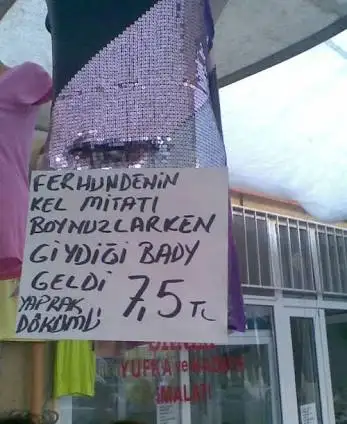 FERHUNDENİN
KEL MİTATI
BOYNUZLARKEN
GİYDİĞİ BADY
GELDİ
YAPRAK
DÖKÜMÜ
7,5 TL
YUFKA ve
İMALATI